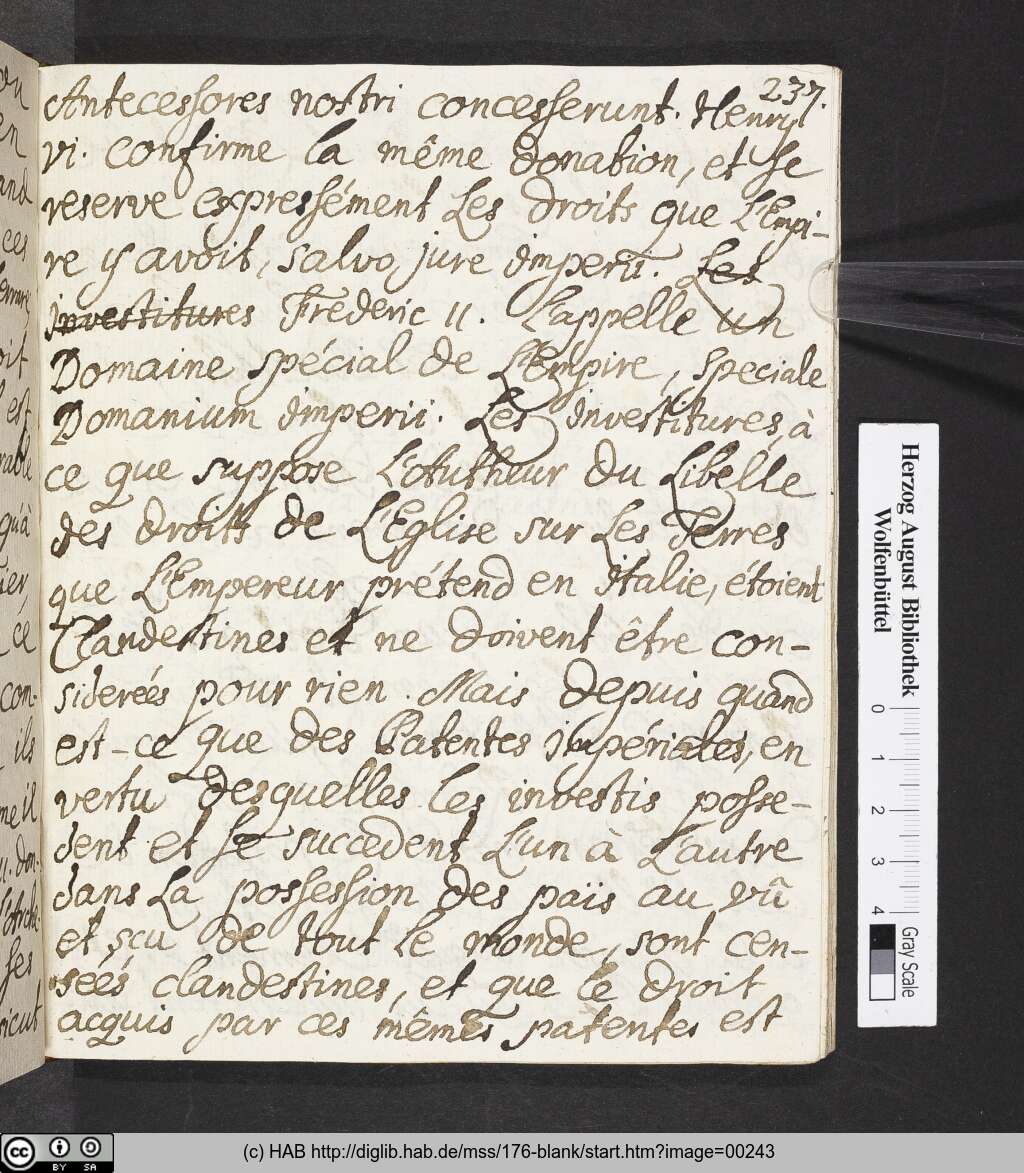 237.
Antecessores nostri concesserunt. Henry
VI. confirme la même donation, et se
reserve expressément Les droits que L'Empi-
re y avoit, salvo jure imperii. Les
investitures Fréderic II. L'appelle un
Domaine spécial de L'Empire, speciale
Domanium imperii. Les investitures, à
ce que suppose L'Autheur du Libelle
des droits de L'Eglise sur Les Terres
que L'Empereur prétend en Italie, étoient
Clandestines et ne doivent être con-
siderées pour rien. Mais depuis quand
est-ce que des Patentes impériales, en
vertu desquelles les investis posse-
dent et se succedent L'un à L'autre
dans La possession des païs au vû
et sçu de tout le monde, sont cen-
sées clandestines, et que le droit
acquis par ces mêmes patentes est
Herzog August Bibliothek
Wolfenbüttel
0 1 2 3 4
Gray Scale
cc BY SA
(c) HAB http://diglib.hab.de/mss/176-blank/start.htm?image=00243